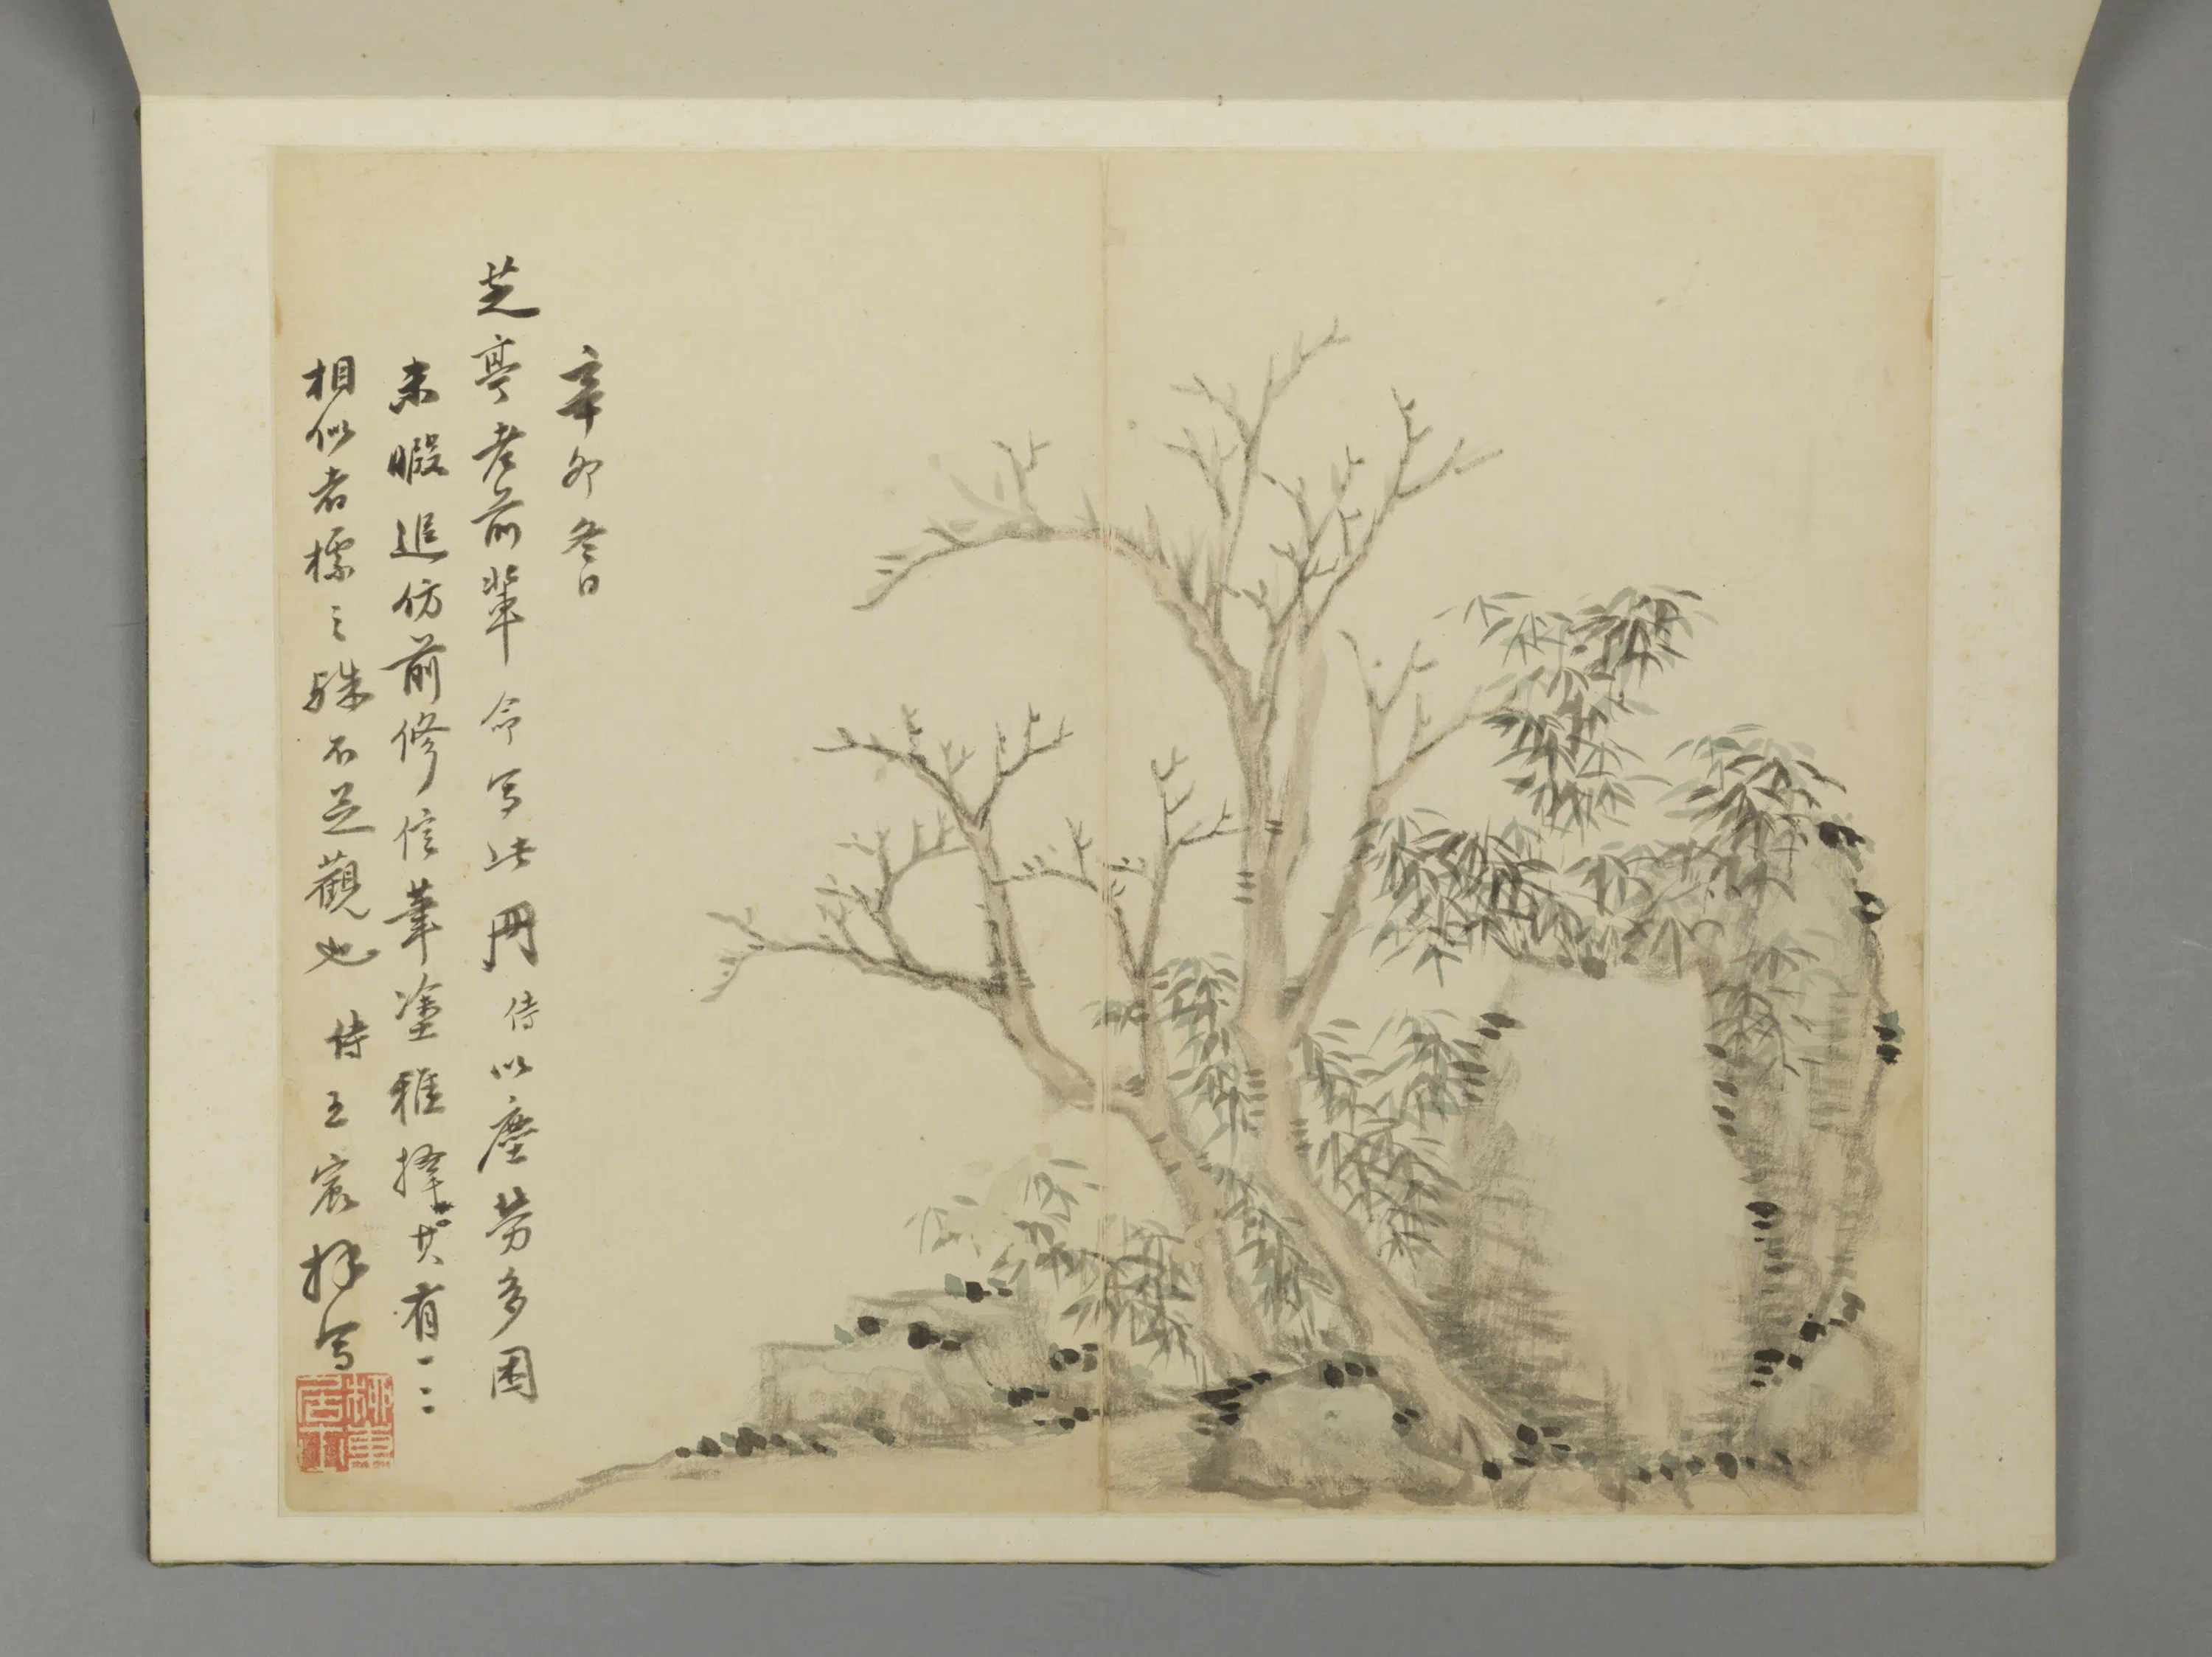 辛卯冬日
芝亭老前輩命写此冊侍以塵勞多困
未暇追仿前修信筆塗雅擇其有一二
相似者標之殊不足觀也侍王宸拜写
柳東居士